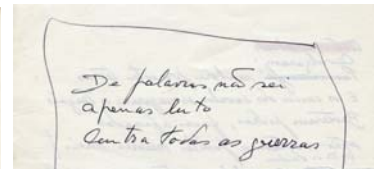 De palavras não sei
apenas luto
contra todas as guerras